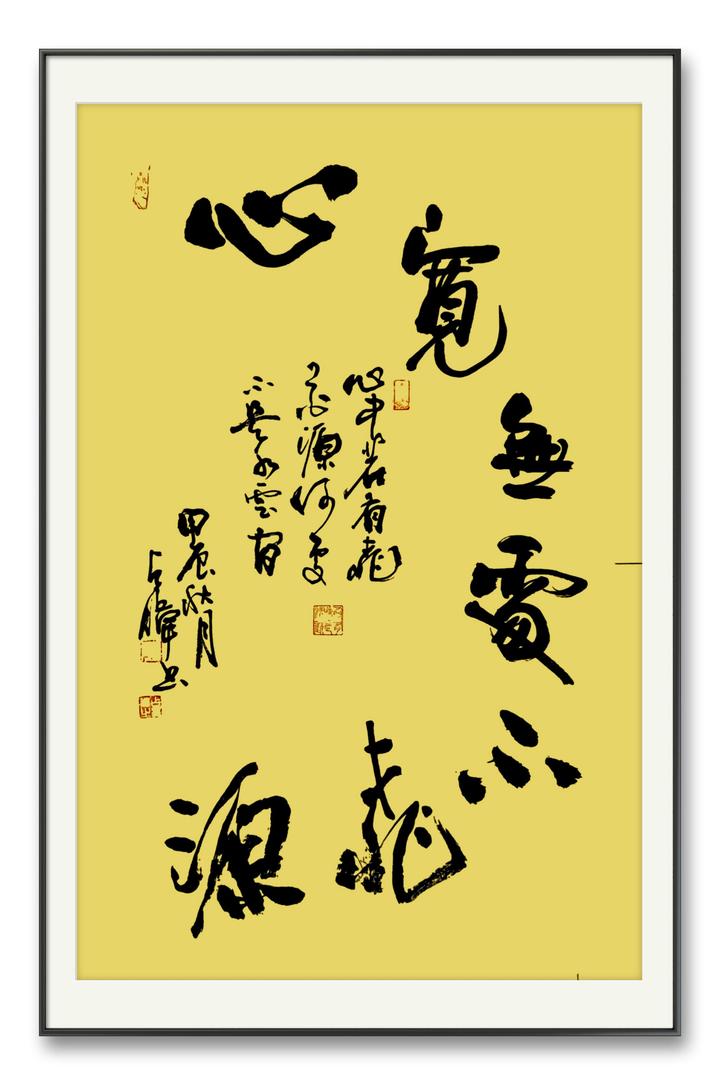 心寬無處不桃源
心中若有桃
花源何處
不是水雲間
甲辰秋月